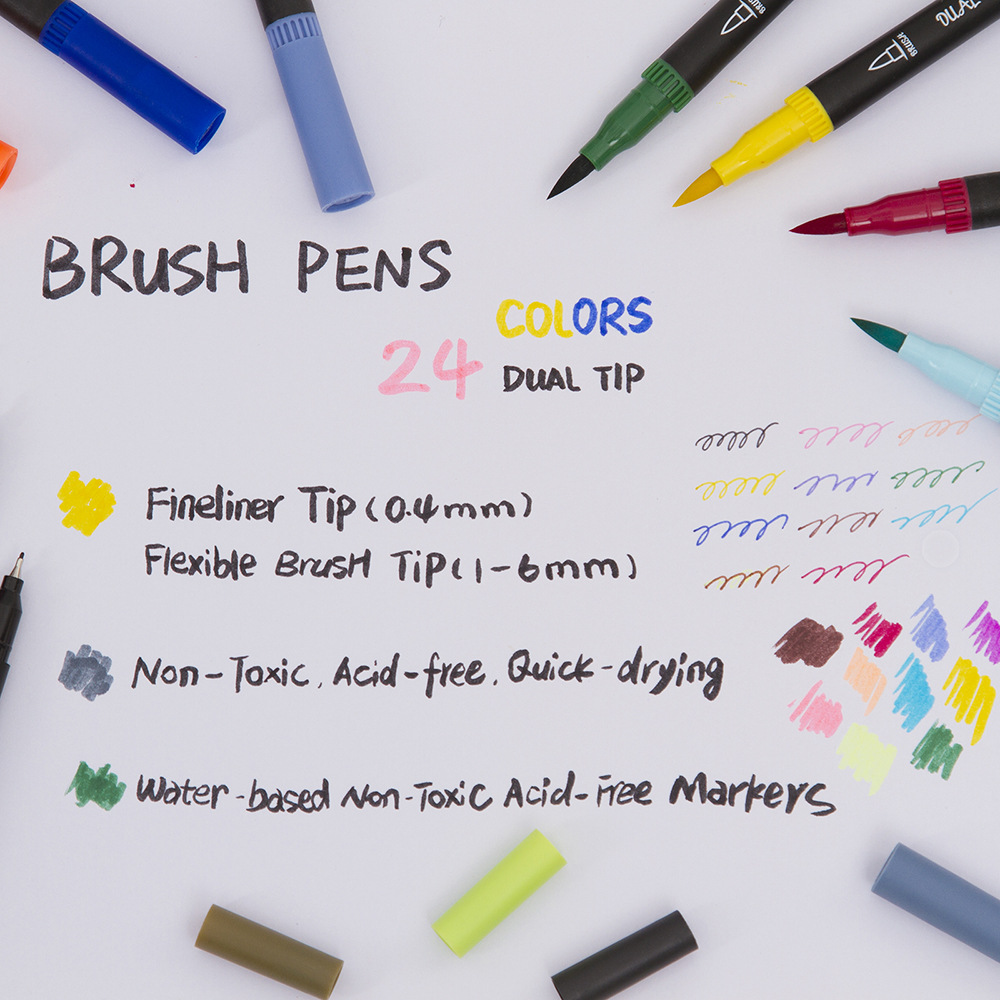 BRUSH
BRUSH
DUAL
BRUSH PENS
COLORS
24 DUAL TIP
Fineliner Tip (0.4mm)
Flexible Brush Tip (1-6mm)
Non-Toxic, Acid-free, Quick-drying
Water-based Non-Toxic Acid-Free Markers